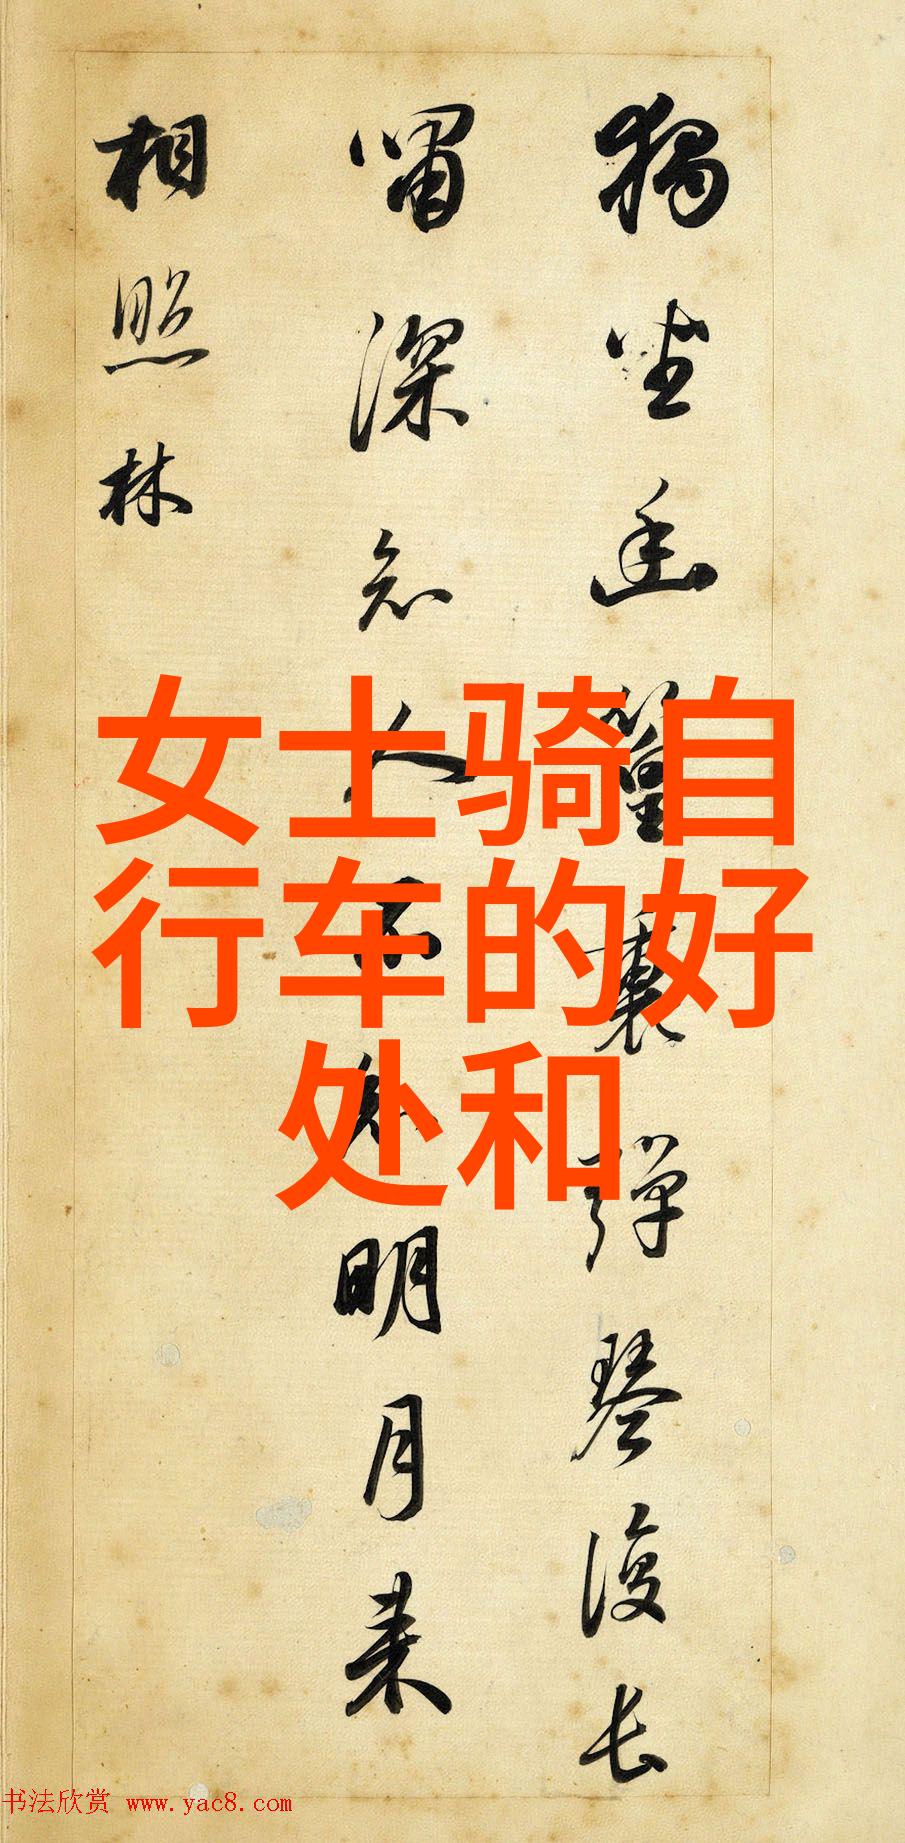 獨坐幽篁裏彈琴復長
嘯深知人不知明月来
相照林
女士骑自
行车的好
处和
书法欣赏 www.yac8.com